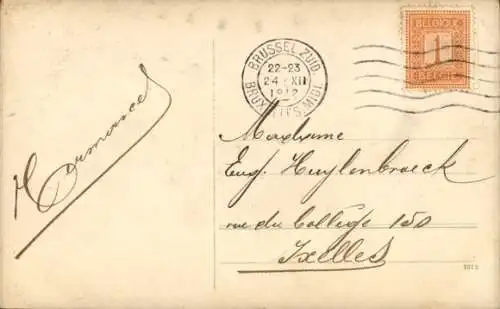 BELGIQUE
1
BELGIË
BRUSSEL ZUID
22-23
24 XII
1912
BRUXELLES MIDI
Madame
Eug. Huylenbroeck
rue du Collège 150
Ixelles